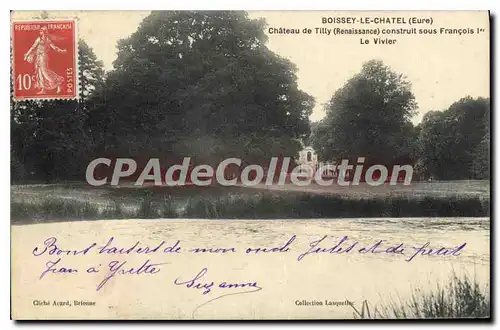 BOISSEY-LE-CHATEL (Eure)
Château de Tilly (Renaissance) construit sous François Ier
Le Vivier
RÉPUBLIQUE FRANÇAISE
10c POSTES
CPArama.com
Bons baisers de mon oncle Jules et de petit
Jean à Yvette
Suzanne
Cliché Acard, Brionne
Collection Lanquetier